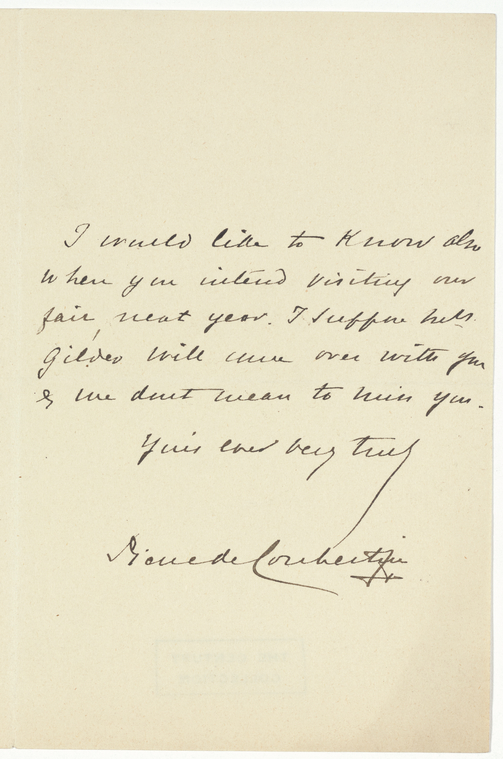 I would like to know also
when you intend visiting our
fair next year. I suppose Mrs
Gilder will come over with you
& we dont mean to miss you.
Yours ever very truly
Pierre de Coubertin